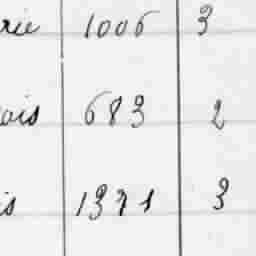 rie 1006 3
ois 683 2
is 1371 3